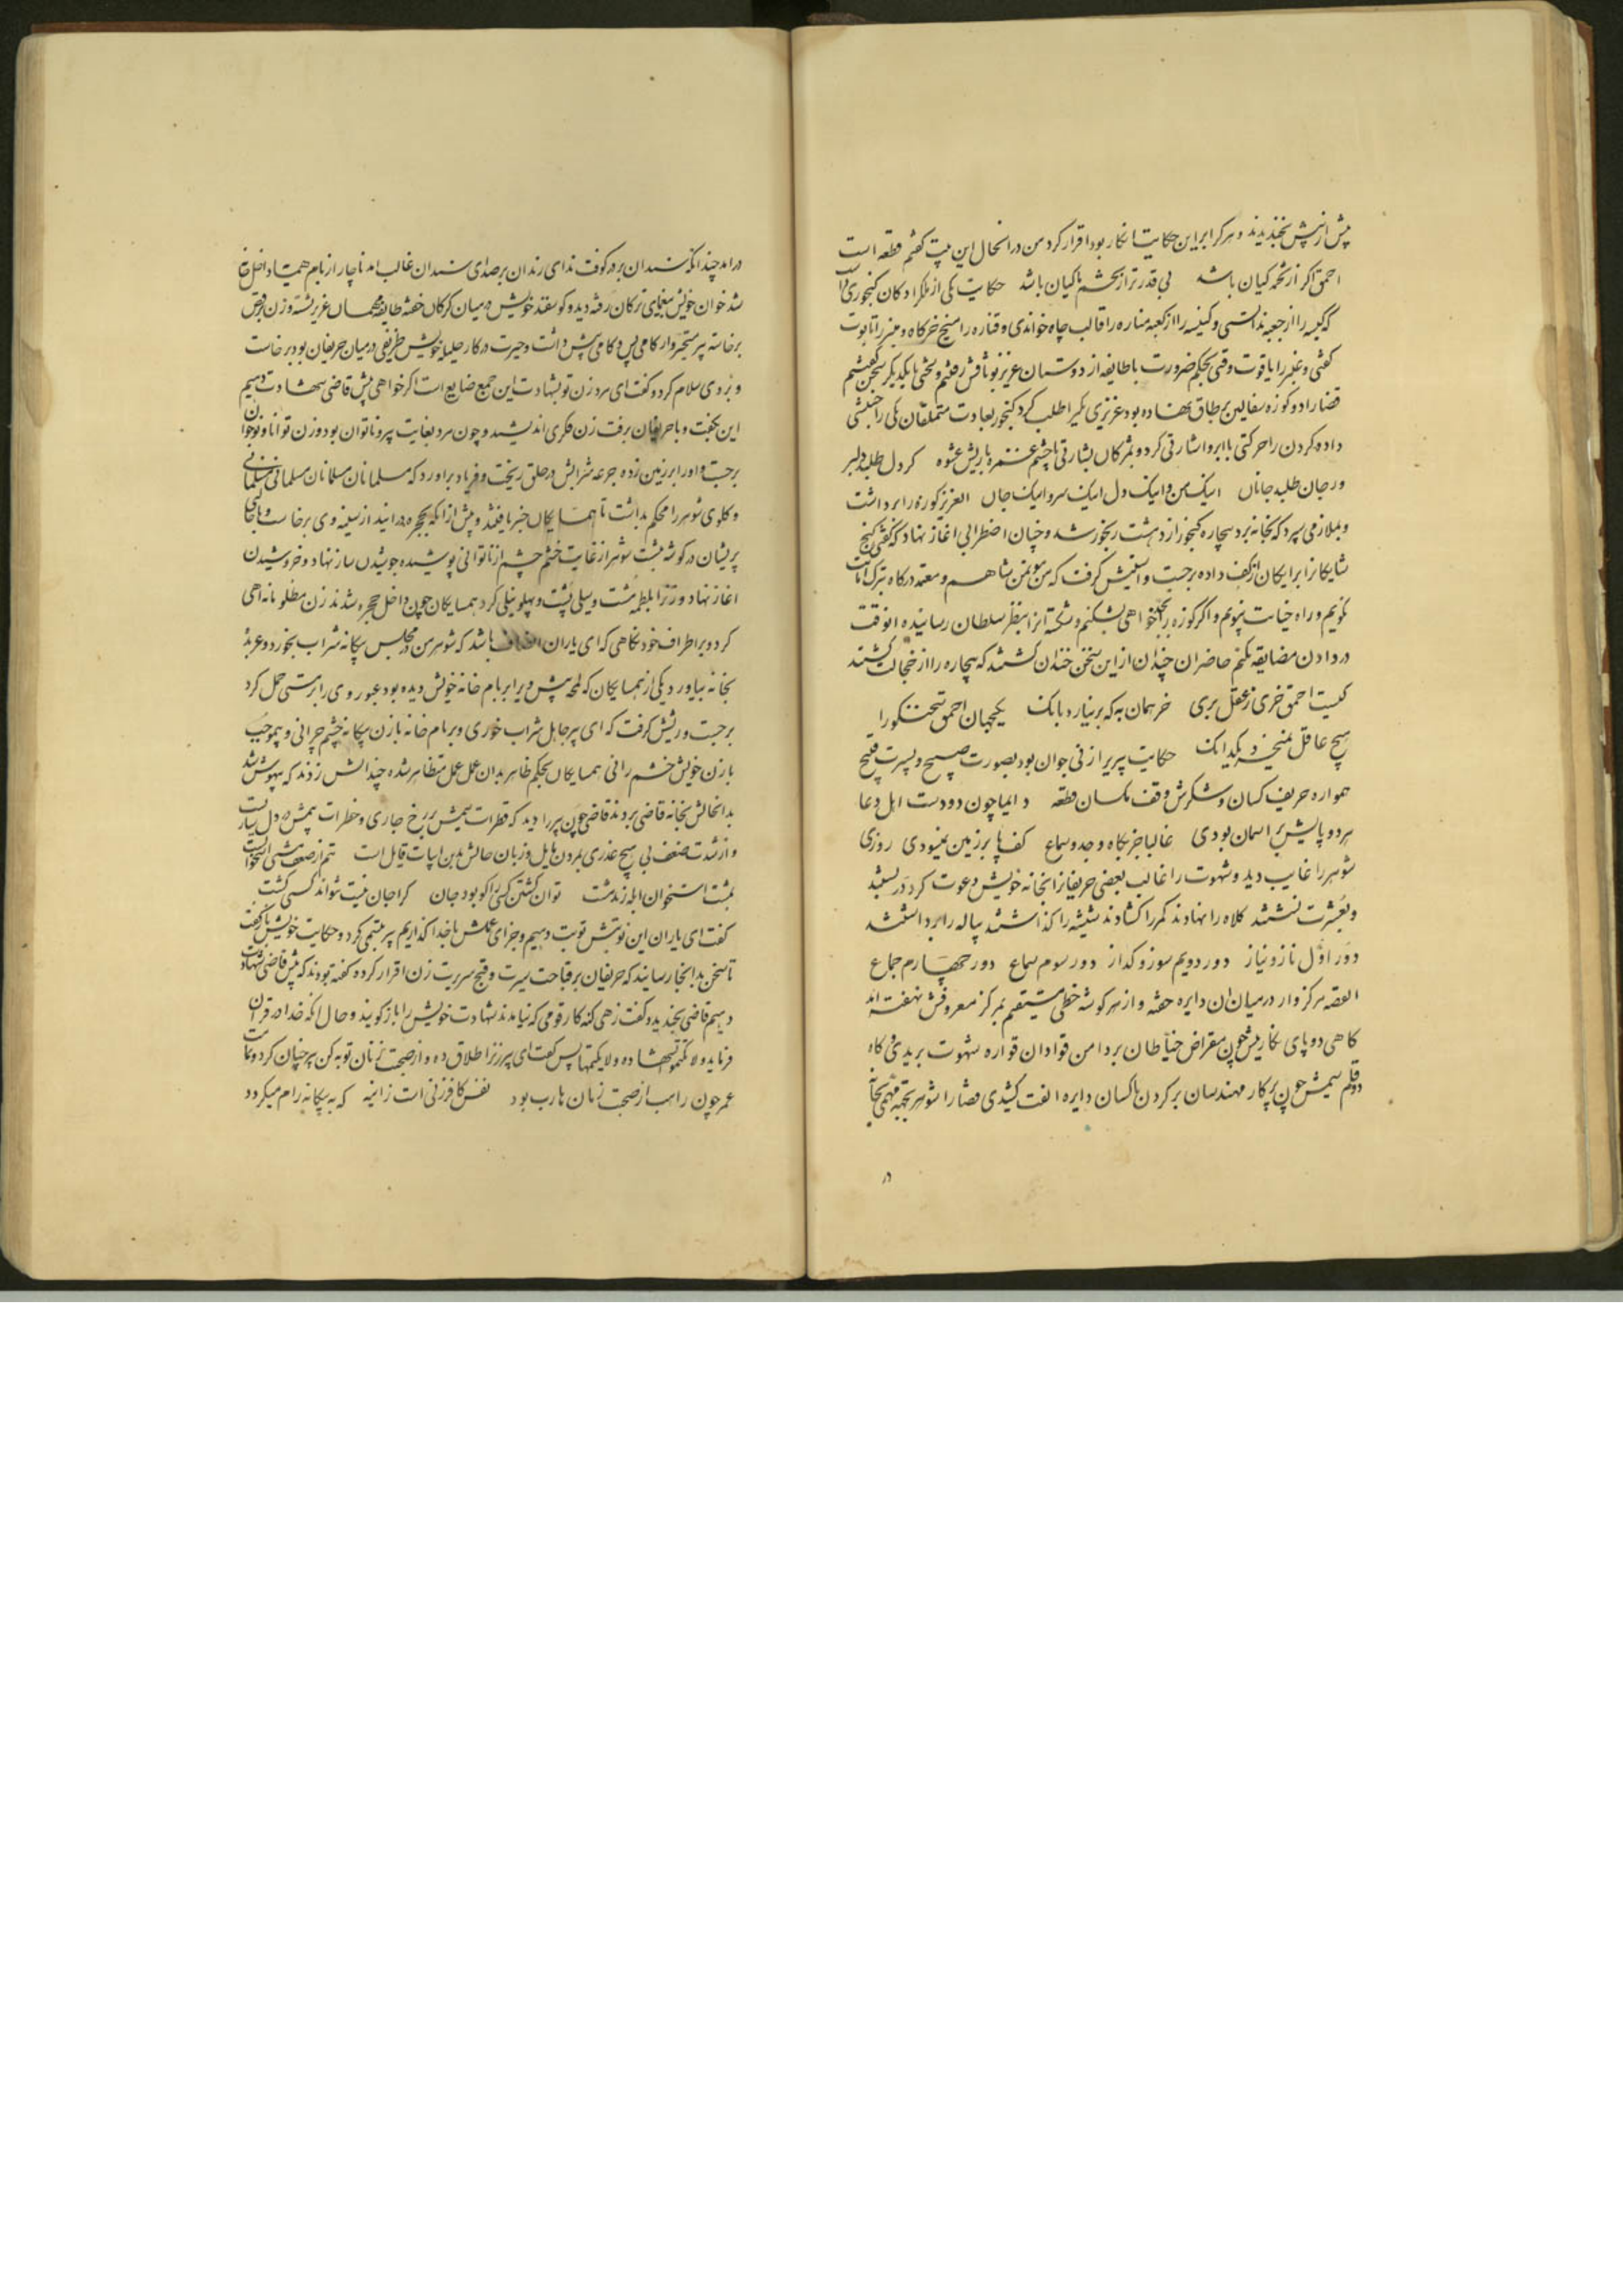 پیش از پیش بخندیدند و هر کرا بر این حکایت انکار بود اقرار کرد من در انحال این بیت کفتم قطعه است
احمق اکر از تخمه کیان باشد بی قدرتر از پشم ماکیان باشد حکایت یکی از ملکزادکان کنجوری
که کیسه را از جعبه ندانستی و کنیسه را از کعبه مناره را قالب چاه خواندی و قناره را میخ خرکاه و منبر را تابوت
کفتی و عنبر را یاقوت وقتی بحکم ضرورت با طایفه از دوستان عزیز بوثاقش رفتیم و لختی با یکدیکر سخن کفتیم
قضا را دو کوزه سفالین بر طاق نهاده بود عزیزی یکیرا طلب کرد کنجور بعادت متملقان یکی را جنبشی
داده کردن را حرکتی با ابرو اشارتی کرد و بمژکان بشارتی با چشم غمزه با ریش عشوه کر دل طلبد دلبر
ور جان طلبد جانان اینک من و اینک دل اینک سر و اینک جان العزیز کوزه را برداشت
و بملازمی سپرد که بخانه برد بیچاره کنجور از دهشت رنجور شد و چنان اضطرابی اغاز نهاد که کفتی کنج
شایکانرا برایکان از کف داده برجست و استینش کرفت که من موتمن شاهم و معتمد درکاه ترک امانت
نکویم و راه خیانت نپویم و اکر کوزه را نخواهی بشکنم و شکسته انرا بنظر سلطان رسانیده انوقت
در دادن مضایقه نکنم حاضران چندان از این سخن خندان کشتند که بیچاره را از خجالت کشتند
کیست احمق خری ز عقل بری خر همان به که بر نیارد بانک یکجهان احمق تنخشکور را
هیچ عاقل نمیخرد بیکدانک حکایت پیریرا زنی جوان بود بصورت صبیح و بسیرت قبیح
همواره حریف کسان و شکرش وقف مکسان قطعه دایما چون دو دست اهل دعا
هر دو پایش بر اسمان بودی غالبا جز بکاه وجد و سماع کف پا بر زمین نمیسودی روزی
شوهر را غایب دید و شهوت را غالب بعضی حریفانرا بخانه خویش دعوت کرد در بستند
و بعشرت نشستند کلاه را نهادند کمر را کشادند شیشه را کذاشتند پیاله را برداشتند
دور اول ناز و نیاز دور دویم سوز و کداز دور سوم سماع دور چهارم جماع
القصه مرکزوار در میان ان دایره خفته و از هر کوشه خطی مستقیم بمرکز معروفش نهفته اند
کاهی دو پای نکارینش چون مقراض خیاطان بر دامن قوادان قواره شهوت بریدی و کاه
دو قلم سیمینش چون پرکار مهندسان بر کردن ناکسان دایره الفت کشیدی قضا را شوهر بجهه مهمی بخانه
در
در امد چندانکه سندان بر در کوفت ندای رندان بر صدای سندان غالب امد ناچار از بام همسایه داخل خانه
شد خوان خویش بیغمای ترکان رفته دید و کوسفند خویش در میان کرکان خفته طایفه مهمان عزیز نشسته و زن برقص
برخاسته پیر متحیروار کامی پس و کامی پیش داشت و حیرت در کار حلیله خویش ظریفی در میان حریفان بود برخاست
و بر وی سلام کرد و کفت ای مرد زن تو بشهادت این جمع ضایع است اکر خواهی پیش قاضی شهادت دهیم
این بکفت و با حریفان برفت زن فکری اندیشید و چون مرد بغایت پیر و ناتوان بود و زن توانا و نوجوان
برجست و او را بر زمین زده جرعه شرابش در حلق ریخت و فریاد براورد که مسلمانان مسلمانان مسلمانی مسلمانی
و کلوی شوهر را محکم بداشت تا همسایکان خبر یافتند و پیش از انکه بحجره درایند از سینه وی برخاست و با حالی
پریشان در کوشه بنشست شوهر از غایت خشم چشم از ناتوانی پوشیده جوشیدن ساز نهاد و خروشیدن
اغاز نهاد و زنرا بلطمه مشت و سیلی پشت و پهلو نیلی کرد همسایکان چون داخل حجره شدند زن مظلومانه اهی
کرد و بر اطراف خود نکاهی که ای یاران انصاف باشد که شوهر من در مجلس بیکانه شراب بخورد و عربده
بخانه بیاورد یکی از همسایکان که لمحه پیش ویرا بر بام خانه خویش دیده بود عبور وی را بر مستی حمل کرد
برجست و ریشش کرفت که ای پیر جاهل شراب خوری و بر بام خانه با زن بیکانه چشم چرانی و بیموجب
با زن خویش خشم رانی همسایکان بحکم ظاهر بدان عمل متظاهر شده چندانش زدند که بیهوش شد
بدانحالش بخانه قاضی بردند قاضی چون پیر را دید که قطرات سیمش بر رخ جاری و خطرات بیمش در دل ساریست
و از شدت ضعف بی هیچ عذری بمردن مایل و زبان حالش بدین ابیات قایل است تنم از ضعف مشتی استخوانست
بمشت استخوان ابله زند مشت توان کشتن کسیرا کو بود جان کرا جان نیست نتواند کسی کشت
کفت ای یاران این نوبتش توبت دهیم و جزای عملش با خدا کذاریم پیر تبسمی کرد و حکایت خویش باز کفت
تا سخن بدانجا رسانید که حریفان بر قباحت سیرت و قبح سریرت زن اقرار کرده کفته بودند که پیش قاضی شهادت
دهیم قاضی بخندید و کفت زهی کنه کار قومی که نیامدند شهادت خویش را باز کویند و حال انکه خدا در قران
فرماید ولا تکتموا الشهاده ولا یکتمها پس کفت ای پیر زنرا طلاق ده و از صحبت زنان توبه کن پیر چنان کرد و تمامت
عمر چون راهب از صحبت زنان هارب بود نفس کافر زنی است زانیه که به بیکانه رام میکردد